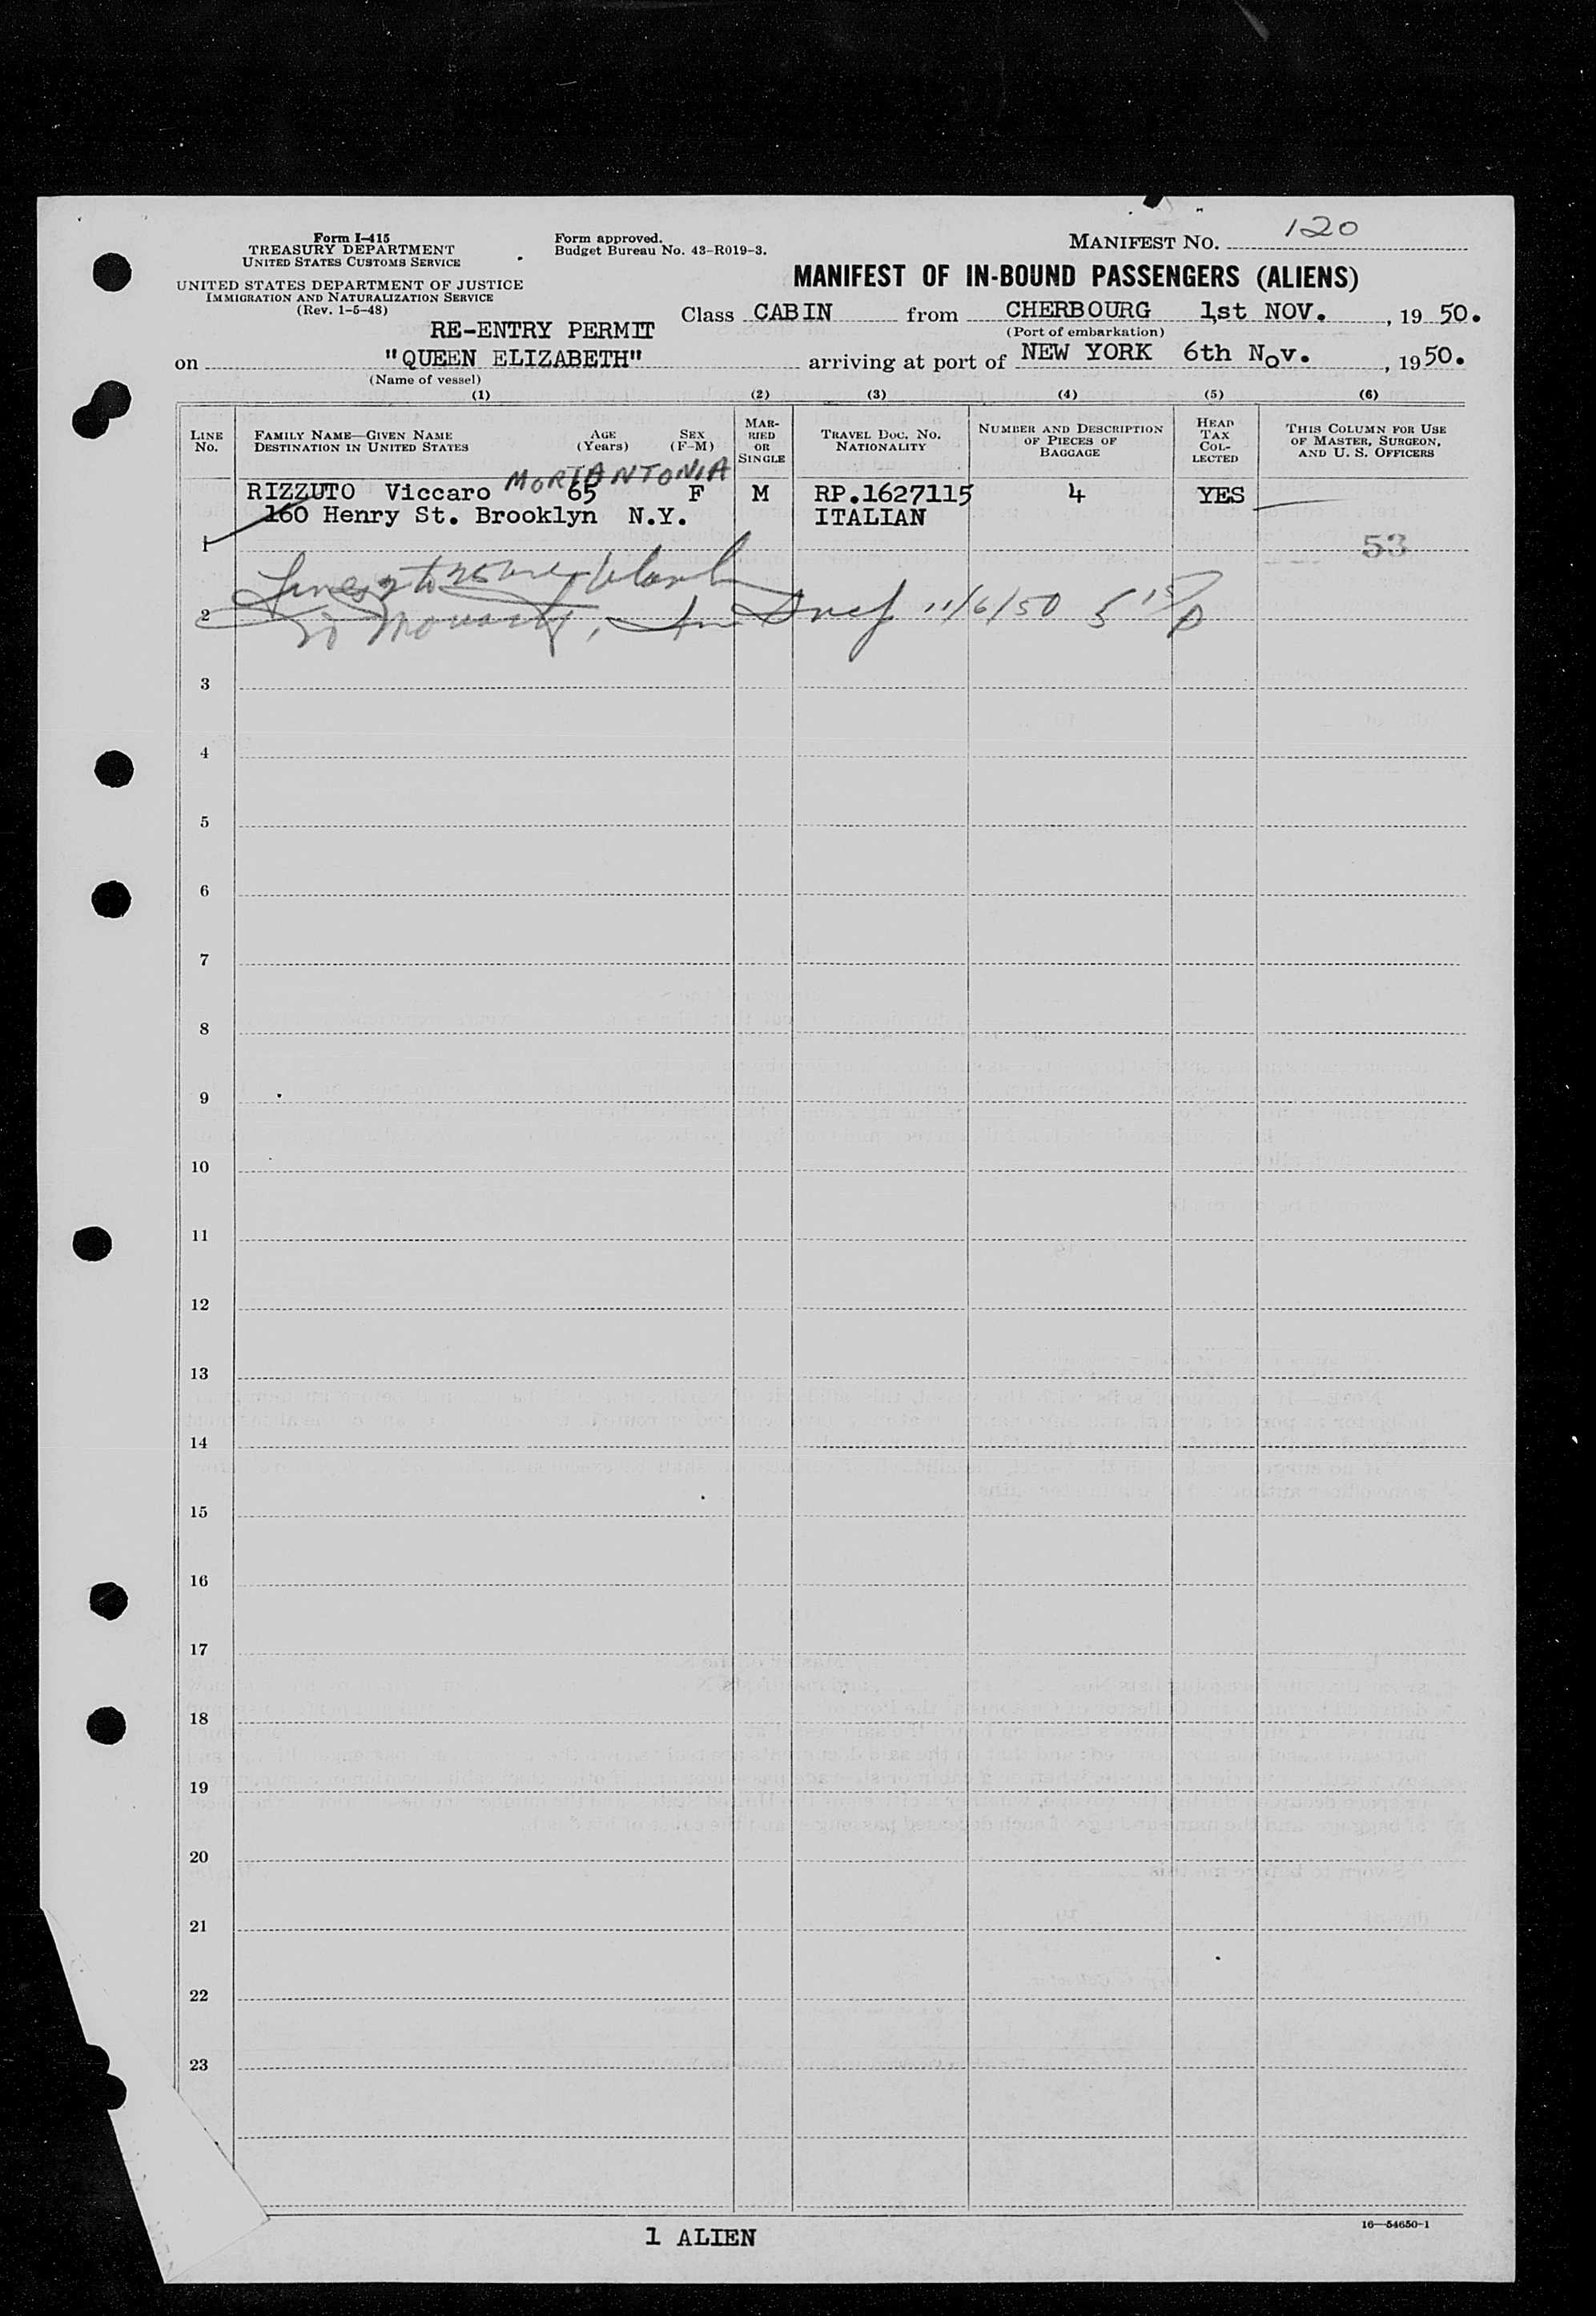 Form I-415
TREASURY DEPARTMENT
UNITED STATES CUSTOMS SERVICE
UNITED STATES DEPARTMENT OF JUSTICE
IMMIGRATION AND NATURALIZATION SERVICE
(Rev. 1-5-48)
Form approved.
Budget Bureau No. 43-R019-3.
MANIFEST NO. 120
MANIFEST OF IN-BOUND PASSENGERS (ALIENS)
Class CABIN from CHERBOURG 1st NOV. , 19 50.
(Port of embarkation)
RE-ENTRY PERMIT
on "QUEEN ELIZABETH" arriving at port of NEW YORK 6th Nov. , 19 50.
(Name of vessel)
(1) (2) (3) (4) (5) (6)
LINE No. FAMILY NAME—GIVEN NAME DESTINATION IN UNITED STATES AGE (Years) SEX (F-M) MARRIED OR SINGLE TRAVEL DOC. NO. NATIONALITY NUMBER AND DESCRIPTION OF PIECES OF BAGGAGE HEAD TAX COLLECTED THIS COLUMN FOR USE OF MASTER, SURGEON, AND U. S. OFFICERS
ANTONIA
RIZZUTO Viccaro 65 F M RP.1627115 4 YES
160 Henry St. Brooklyn N.Y. ITALIAN
1 53
Lines 2 to 25 blank
2 11/6/50
3
4
5
6
7
8
9
10
11
12
13
14
15
16
17
18
19
20
21
22
23
16—54650-1
1 ALIEN